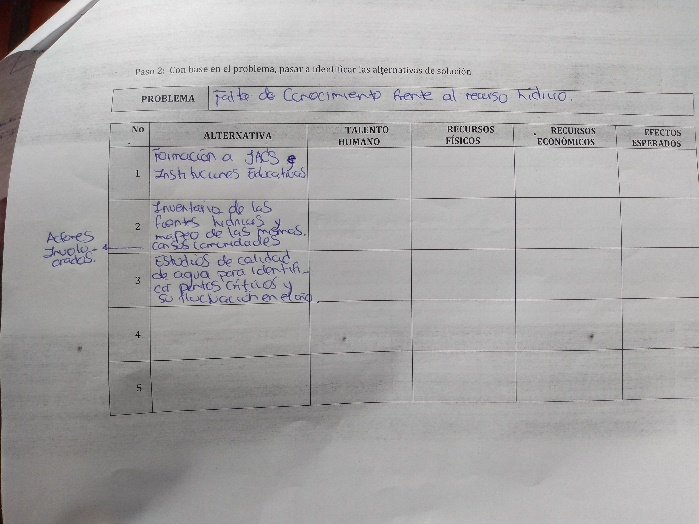 Paso 2: Con base en el problema, pasar a identificar las alternativas de solución
PROBLEMA Falta de Conocimiento frente al recurso hídrico.
No. ALTERNATIVA TALENTO HUMANO RECURSOS FÍSICOS RECURSOS ECONÓMICOS EFECTOS ESPERADOS
1
Formación a JACS e
Instituciones Educativas
2
Inventario de las
fuentes hídricas y
mapeo de las mismas.
comunidades
Actores
Involu-
crados.
3
Estudios de calidad
de agua para identifi-
car puntos críticos y
su fluctuación en el año
4
5